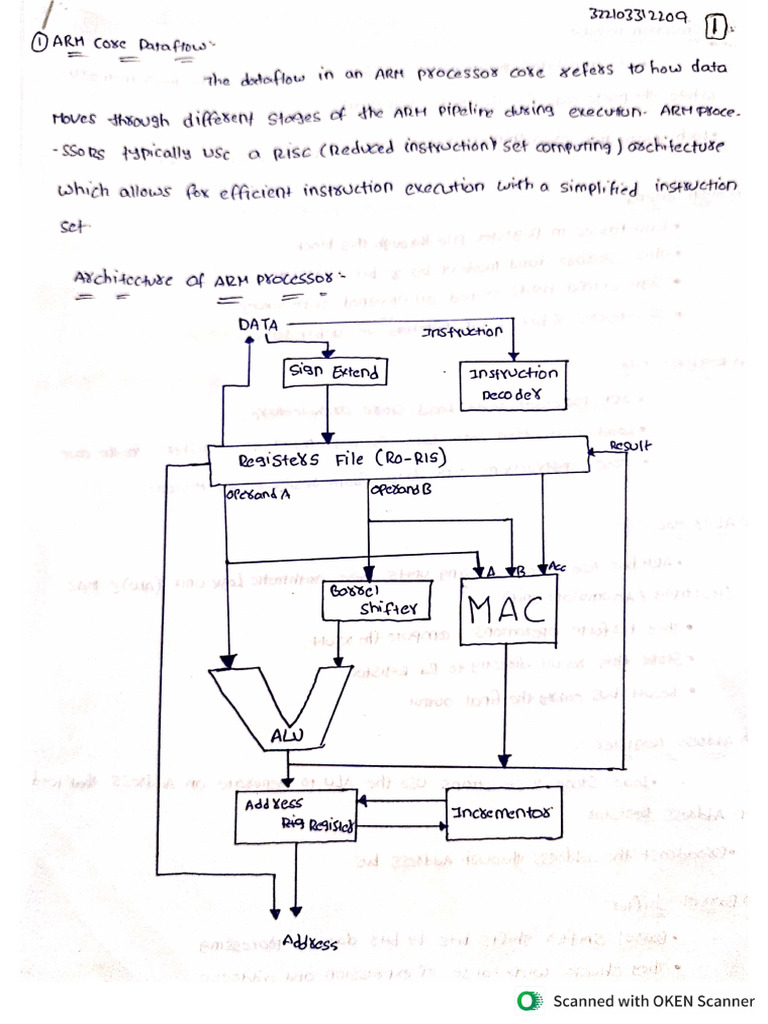 322103312209 1
① ARM Core Dataflow:-
The dataflow in an ARM processor core refers to how data
Moves through different stages of the ARM Pipeline during execution. ARM Proce-
-ssors typically use a RISC (Reduced instruction set computing) architecture
which allows for efficient instruction execution with a simplified instruction
set.
Architecture of ARM Processor:-
DATA
Instruction
Sign Extend
Instruction
Decoder
Registers File (R0-R15)
Result
Operand A
Operand B
A
B
Acc
Barrel
Shifter
MAC
ALU
Address
Rig Register
Incrementor
Address
Scanned with OKEN Scanner